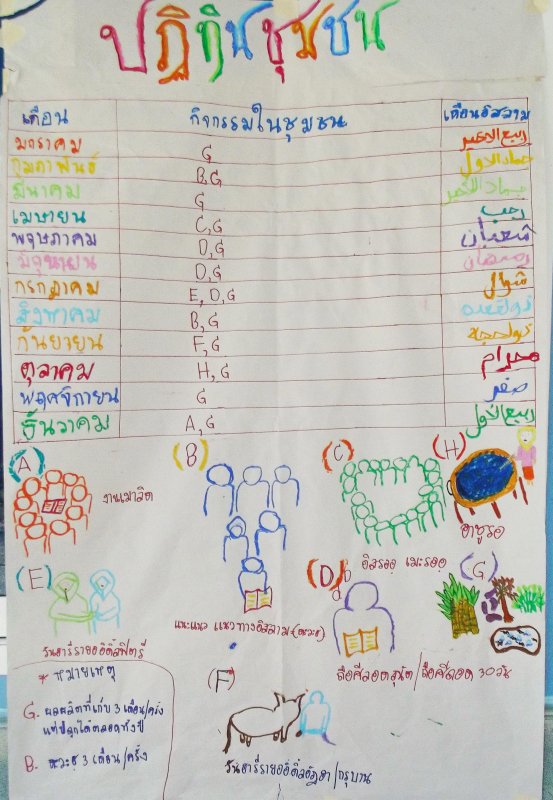 ปฏิทินชุมชน
เดือน กิจกรรมในชุมชน เดือนอิสลาม
มกราคม G ربيع الاخير
กุมภาพันธ์ B,G جماد الاول
มีนาคม G جماد الاخير
เมษายน C,G رجب
พฤษภาคม D,G شعبان
มิถุนายน D,G رمضان
กรกฎาคม E,D,G شوال
สิงหาคม B,G ذوالقعده
กันยายน F,G ذوالحجه
ตุลาคม H,G محرام
พฤศจิกายน G صفر
ธันวาคม A,G ربيع الاول
(A) (B) (C) (H)
งานเมาลิด
อาซูรอ
อิสรออฺ เมะรอจฺ
(E) (D) (G)
แนะแนว แนวทางอิสลาม
วันฮารีรายออีดิ้ลฟิตรี
ถือศีลอดสุนัต/ถือศีลอด 30 วัน
(F)
* หมายเหตุ
G. ผลผลิตที่เก็บ 3 เดือน/ครั้ง
แต่ปลูกได้ตลอดทั้งปี
B. 3 เดือน/ครั้ง
วันฮารีรายออิดิ้ลอัฎฮา/กรุบาน